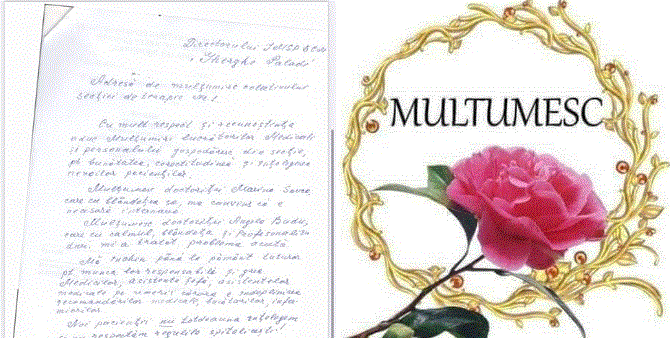 Directorului IMSP SCM
"Gheorghe Paladi"
Adresă de mulțumire colectivului
Secției de terapie nr. 1
Cu mult respect și recunoștință
aduc Mulțumiri lucrătorilor Medicali
și personalului gospodăresc din secție,
pt bunătatea, corectitudinea și înțelegerea
nevoilor pacienților.
Mulțumesc doctoriței Marina
care cu blândețea sa, m-a convins că e
necesară internarea.
Mulțumesc doctoriței Angela
care cu calmul, blândețea și Profesionalism
mi-a tratat problema acută
Mă închin până la pământ tuturor
pt munca lor responsabilă și grea
Medicilor, asistentei șefă, asistentelor
medicale pe umerii cărora e îndeplinirea
recomandărilor medicale, infir-
mierilor
Noi pacienții nu totdeauna înțelegem
și nu respectăm regulile spitalicești!
MULTUMESC